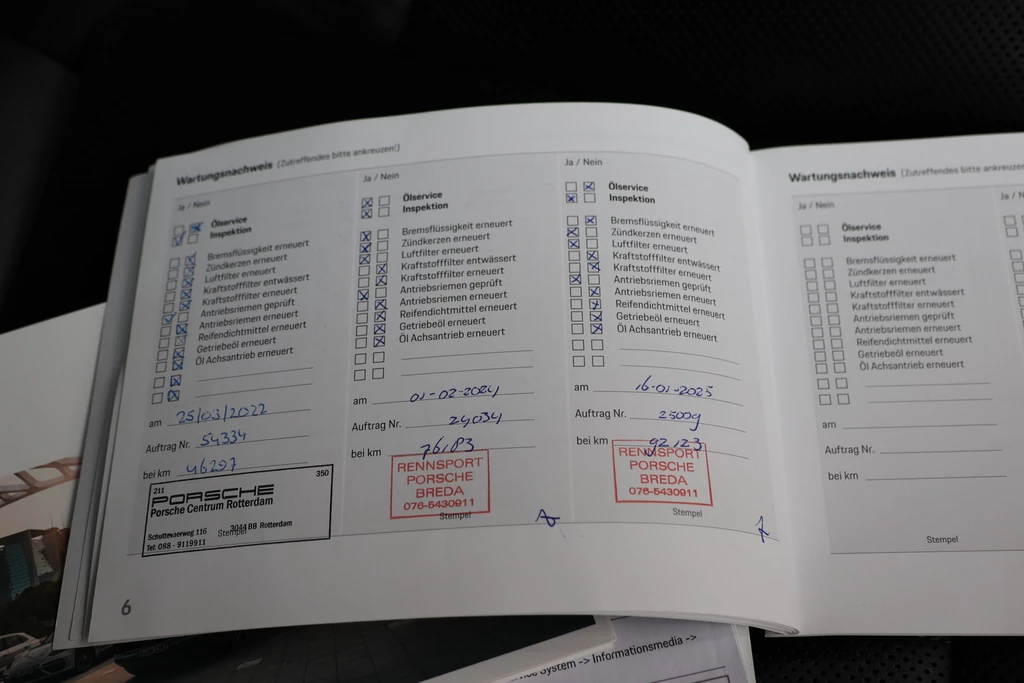 Wartungsnachweis (Zutreffendes bitte ankreuzen!)
Ja / Nein
Ölservice
Inspektion
Bremsflüssigkeit erneuert
Zündkerzen erneuert
Luftfilter erneuert
Kraftstofffilter entwässert
Kraftstofffilter erneuert
Antriebsriemen geprüft
Antriebsriemen erneuert
Reifendichtmittel erneuert
Getriebeöl erneuert
Öl Achsantrieb erneuert
am 25/03/2022
Auftrag Nr. 54334
bei km 46207
211 350
PORSCHE
Porsche Centrum Rotterdam
Schuttevaerweg 116 3044 BB Rotterdam
Tel: 088 - 9119911
Stempel
Ja / Nein
Ölservice
Inspektion
Bremsflüssigkeit erneuert
Zündkerzen erneuert
Luftfilter erneuert
Kraftstofffilter entwässert
Kraftstofffilter erneuert
Antriebsriemen geprüft
Antriebsriemen erneuert
Reifendichtmittel erneuert
Getriebeöl erneuert
Öl Achsantrieb erneuert
am 01-02-2024
Auftrag Nr. 24034
bei km
RENNSPORT
PORSCHE
BREDA
076-5430911
Stempel
Ja / Nein
Ölservice
Inspektion
Bremsflüssigkeit erneuert
Zündkerzen erneuert
Luftfilter erneuert
Kraftstofffilter entwässert
Kraftstofffilter erneuert
Antriebsriemen geprüft
Antriebsriemen erneuert
Reifendichtmittel erneuert
Getriebeöl erneuert
Öl Achsantrieb erneuert
am 16-01-2025
Auftrag Nr. 25009
bei km 92123
RENNSPORT
PORSCHE
BREDA
076-5430911
Stempel
6
Wartungsnachweis (Zutreffendes bitte ankreuzen
Ja / Nein
Ölservice
Inspektion
Bremsflüssigkeit erneuert
Zündkerzen erneuert
Luftfilter erneuert
Kraftstofffilter entwässert
Kraftstofffilter erneuert
Antriebsriemen geprüft
Antriebsriemen erneuert
Reifendichtmittel erneuert
Getriebeöl erneuert
Öl Achsantrieb erneuert
am
Auftrag Nr.
bei km
Stempel
Ja / N
System -> Informationsmedia ->